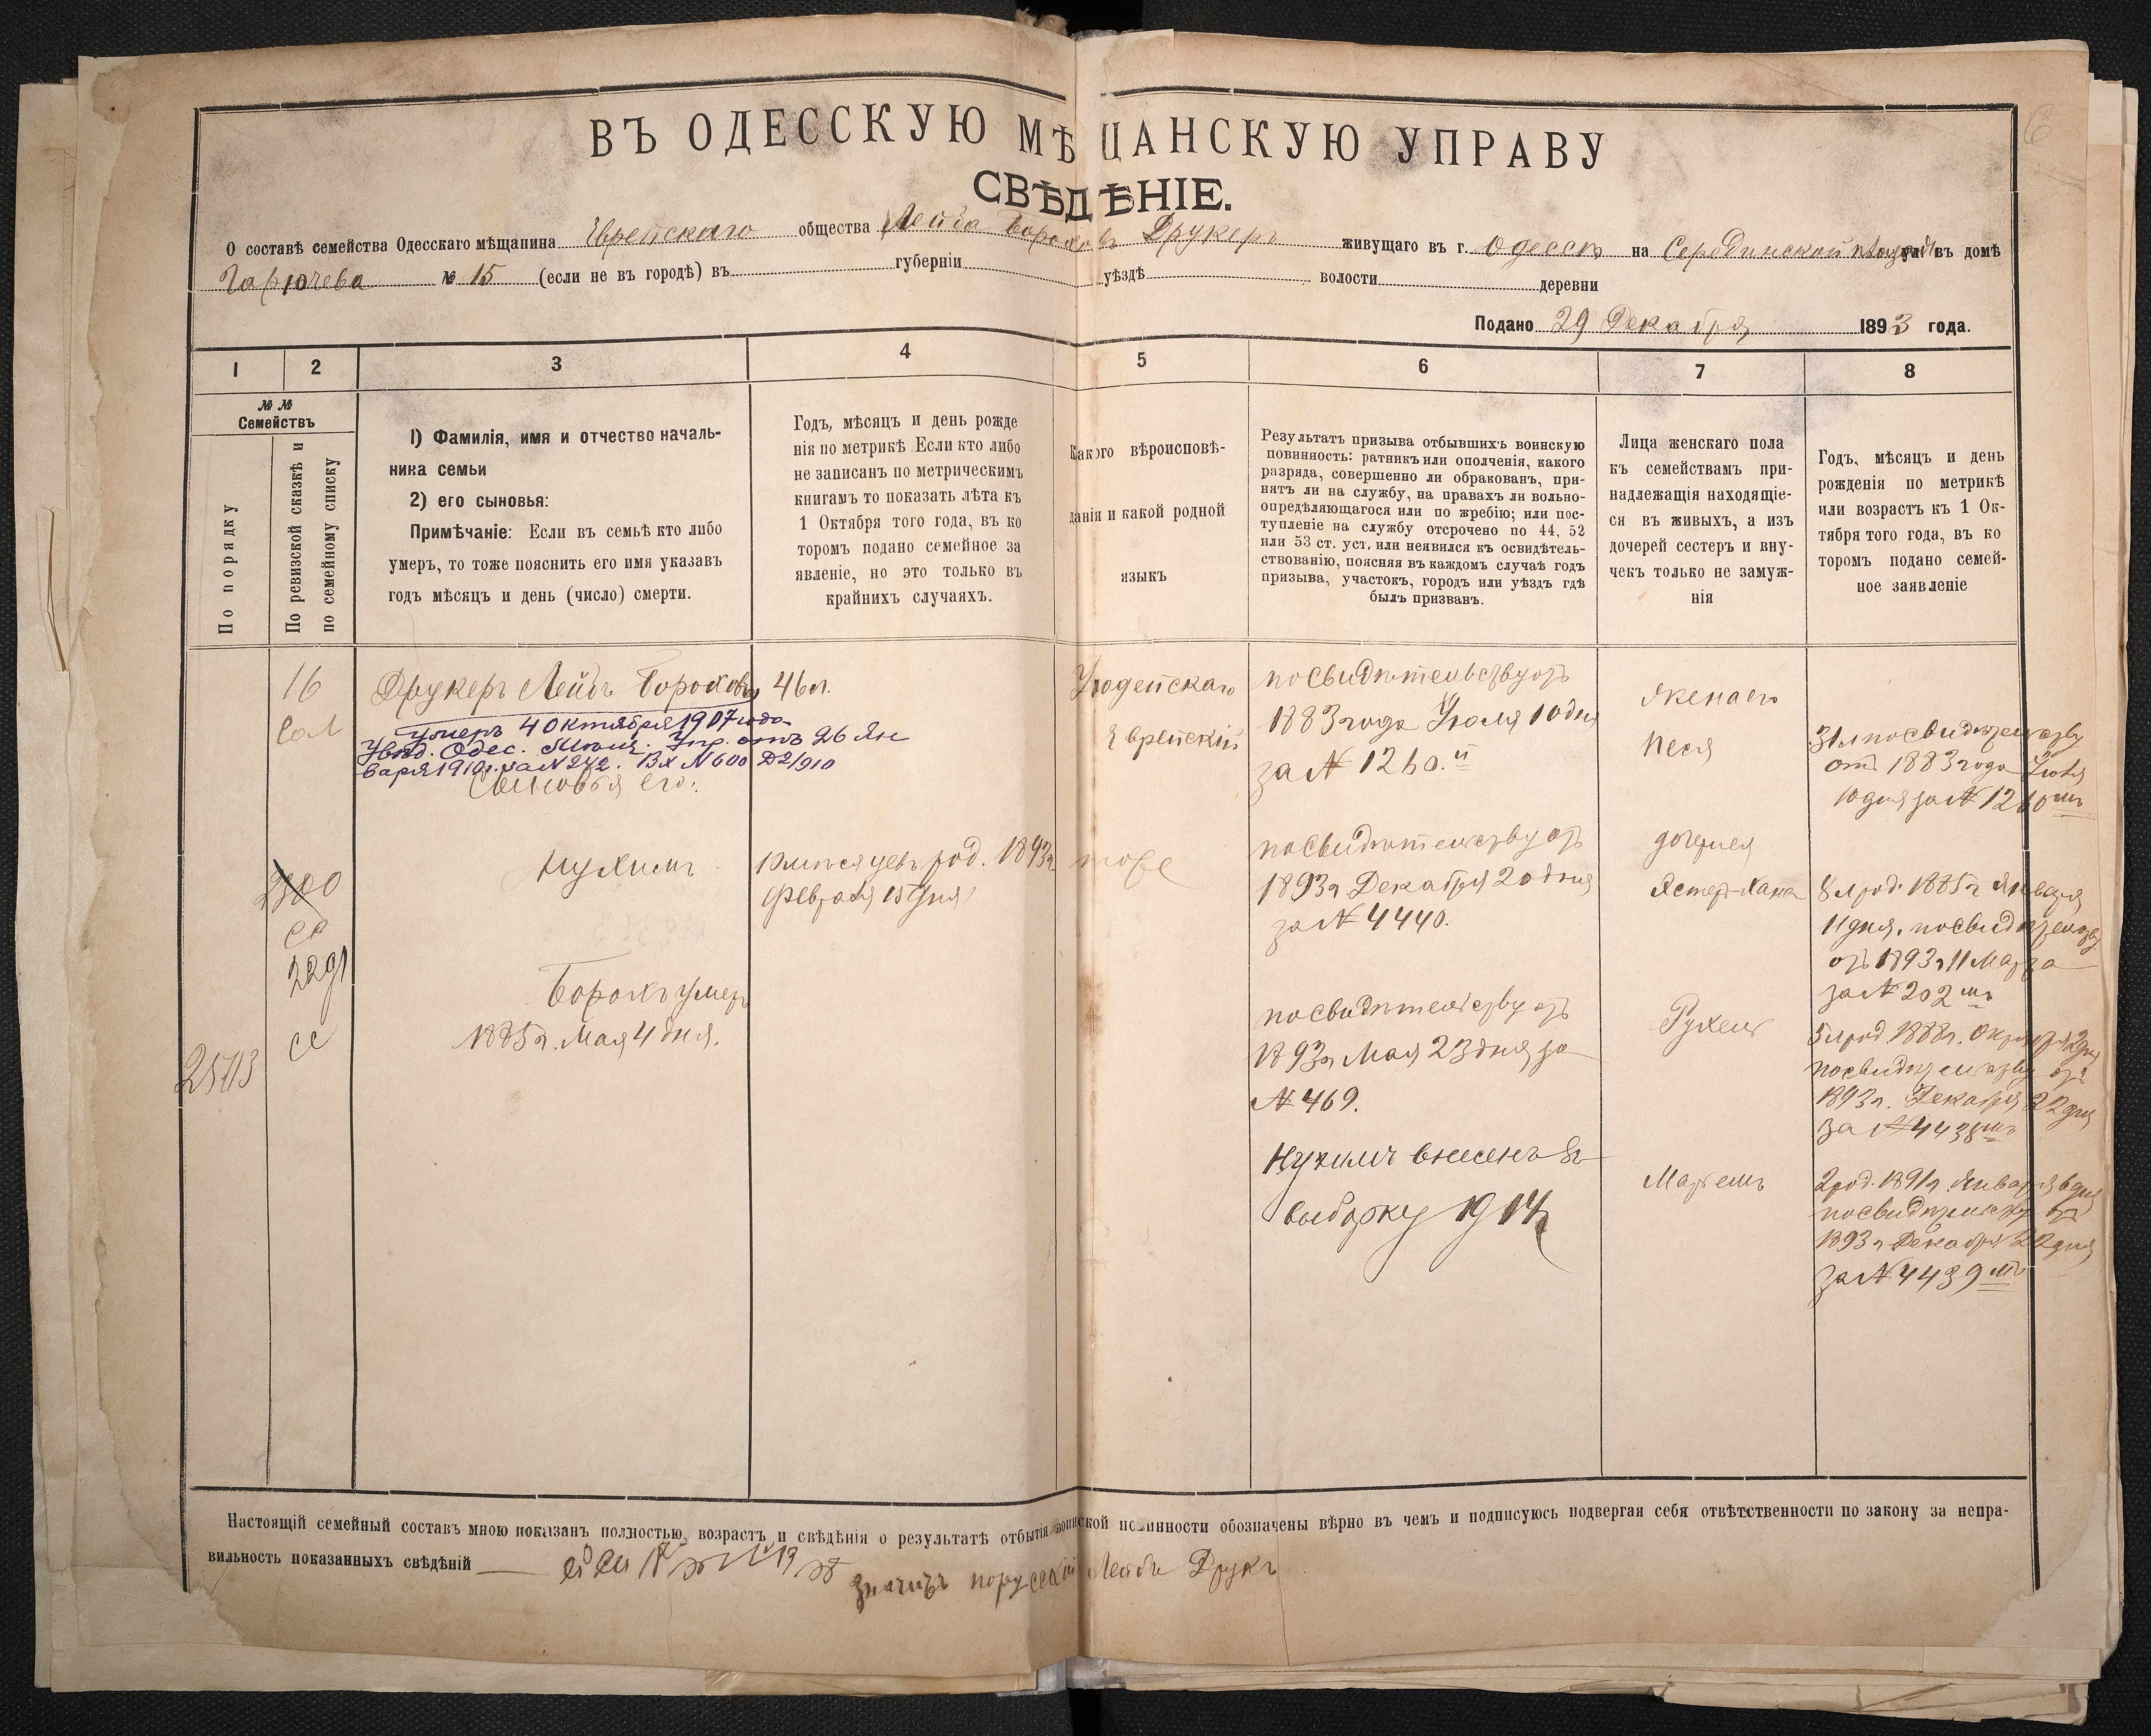 ВЪ ОДЕССКУЮ МѢЩАНСКУЮ УПРАВУ
СВѢДѢНІЕ.
О составѣ семейства Одесскаго мѣщанина Еврейскаго общества Лейба Борохов Друкеръ живущаго въ г. Одессѣ на Серединской площади въ домѣ
№ 15 (если не въ городѣ) въ губерніи уѣздѣ волости деревни
Подано 29 Декабря 1893 года.
1 2 3 4 5 6 7 8
№ №
Семействъ
По порядку
По ревизской сказкѣ и
по семейному списку
1) Фамилія, имя и отчество началь-
ника семьи
2) его сыновья:
Примѣчаніе: Если въ семьѣ кто либо
умеръ, то тоже пояснить его имя указавъ
годъ мѣсяцъ и день (число) смерти.
Годъ, мѣсяцъ и день рожде
нія по метрикѣ. Если кто либо
не записанъ по метрическимъ
книгамъ то показать лѣта къ
1 Октября того года, въ ко
торомъ подано семейное за
явленіе, но это только въ
крайнихъ случаяхъ.
Какого вѣроисповѣ-
данія и какой родной
языкъ
Результатъ призыва отбывшихъ воинскую
повинность: ратникъ или ополченія, какого
разряда, совершенно ли обракованъ, при-
нятъ ли на службу, на правахъ ли вольно-
опредѣляющагося или по жребію; или пос-
тупленіе на службу отсрочено по 44, 52
или 53 ст. уст. или неявился къ освидѣтель-
ствованію, поясняя въ каждомъ случаѣ годъ
призыва, участокъ, городъ или уѣздъ гдѣ
былъ призванъ.
Лица женскаго пола
къ семействамъ при-
надлежащія находящіе-
ся въ живыхъ, а изъ
дочерей сестеръ и вну-
чекъ только не замуж-
нія
Годъ, мѣсяцъ и день
рожденія по метрикѣ
или возрастъ къ 1 Ок-
тября того года, въ ко
торомъ подано семей-
ное заявленіе
16
Друкеръ Лейбъ Бороховъ
умеръ 4 октября 1907 года
Увѣд. Одес. Мѣщ. Упр. отъ 26 Ян
варя 1910 г. за N 242. Вх N 600 Д2/910
Сыновья его:
46 л.
Іудейскаго
Еврейскій
по свидѣтельству отъ
1883 года Іюля 10 дня
за N 1260.й
жена его
Песя
31 л по свидѣтельству
отъ 1883 года Іюля
10 дня за N 1260 мъ
2300
сс
2291
сс
25713
Нухимъ
10 мѣсяцевъ род. 1893 г.
Февраля 15 дня
тоже
по свидѣтельству отъ
1893 г Декабря 20 дня
за N 4440.
дочери
Эстер-Хана
8 л род. 1885 г Января
11 дня. по свидѣтельству
отъ 1893 г 11 Марта
за N 202 мъ
Борохъ умеръ
1885 г. Мая 4 дня.
по свидѣтельству отъ
1893 г Мая 23 дня за
N 469.
Рухель
5 л род 1888 г. Октября 2 дня
по свидѣтельству отъ
1893 г. Декабря 22 дня
за N 4438 мъ
Нухимъ внесенъ въ
выборку 1914
2 род. 1891 г. Января 6 дня
по свидѣтельству отъ
1893 г Декабря 22 дня
за N 4439 мъ
Настоящій семейный составъ мною показанъ полностью, возрастъ и свѣдѣнія о результатѣ отбытія воинской повинности обозначены вѣрно въ чемъ и подписуюсь подвергая себя отвѣтственности по закону за непра-
вильность показанныхъ свѣдѣній
значитъ по русский Лейбъ Друкъ